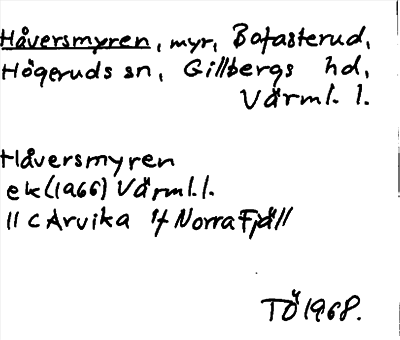 Håversmyren, myr, Bofasterud,
Högeruds sn, Gillbergs hd,
Värml. l.
Håversmyren
ek (1966) Värml. l.
11 C Arvika 4f Norra Fjäll
TÖ 1968.